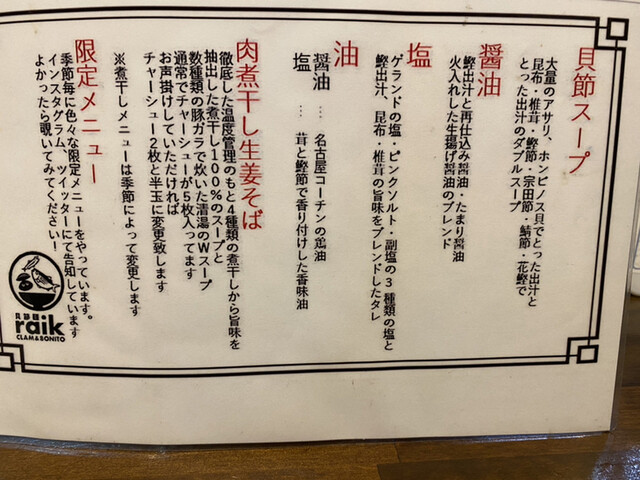 貝節スープ
大量のアサリ、ホンビノス貝でとった出汁と
昆布・椎茸・鰹節・宗田節・鯖節・花鰹で
とった出汁のダブルスープ
醤油
鰹出汁と再仕込み醤油・たまり醤油
火入れした生揚げ醤油のブレンド
塩
ゲランドの塩・ピンクソルト・副塩の3種類の塩と
鰹出汁、昆布・椎茸の旨味をブレンドしたタレ
油
醤油 … 名古屋コーチンの鶏油
塩 … 茸と鰹節で香り付けした香味油
肉煮干し生姜そば
徹底した温度管理のもと4種類の煮干しから旨味を
抽出した煮干し100%のスープと
数種類の豚ガラで炊いた清湯のWスープ
通常でチャーシューが5枚入ってます
お声掛けしていただければ
チャーシュー2枚と半玉に変更致します
※煮干しメニューは季節によって変更します
限定メニュー
季節毎に色々な限定メニューをやっています。
インスタグラム、ツイッターにて告知しています
よかったら覗いてみてください!
る
貝節麺
raik
CLAM&BONITO